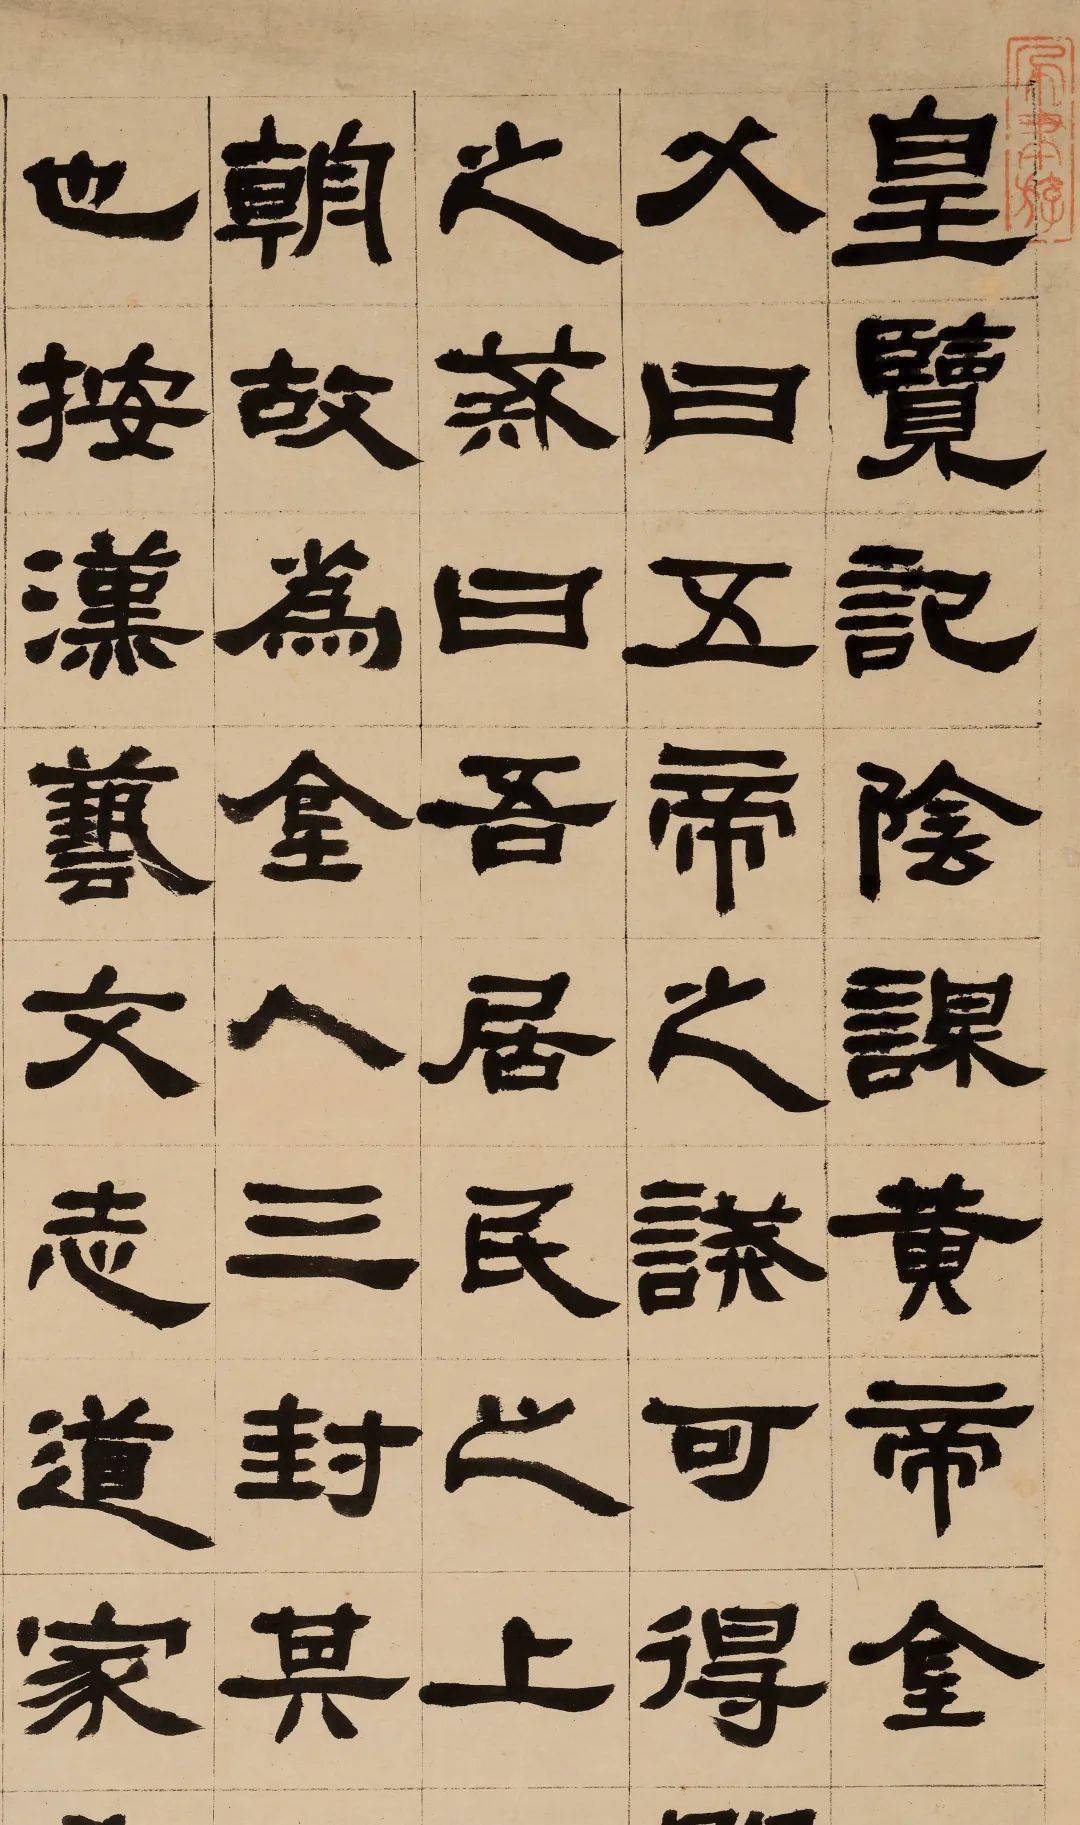 皇覽記陰謀黄帝金
父曰五帝之誡可得
之戒曰吾居民之上
朝故為金人三封其
也按漢藝文志道家